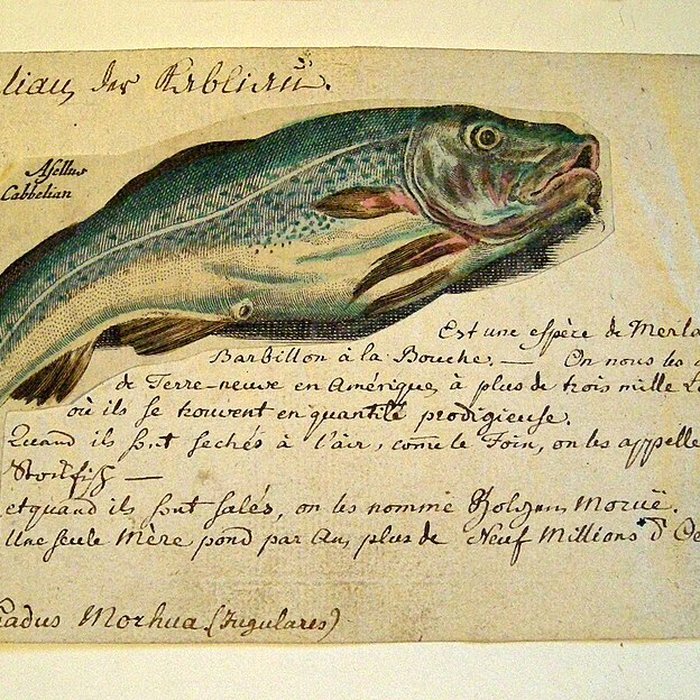 liau, der Kabliau.
Asellus
Cabbelian
Est une espèce de Merla
Barbillon à la Bouche. — On nous les
de Terre-neuve en Amérique, à plus de trois mille
où ils se trouvent en quantité prodigieuse.
Quand ils sont sechés à l'air, come le Foin, on les appelle
Stockfisch —
et quand ils sont salés, on les nomme Moruë.
Une seule Mère pond par An, plus de Neuf Millions d'Oe
adus Morhua. (Jugulares)